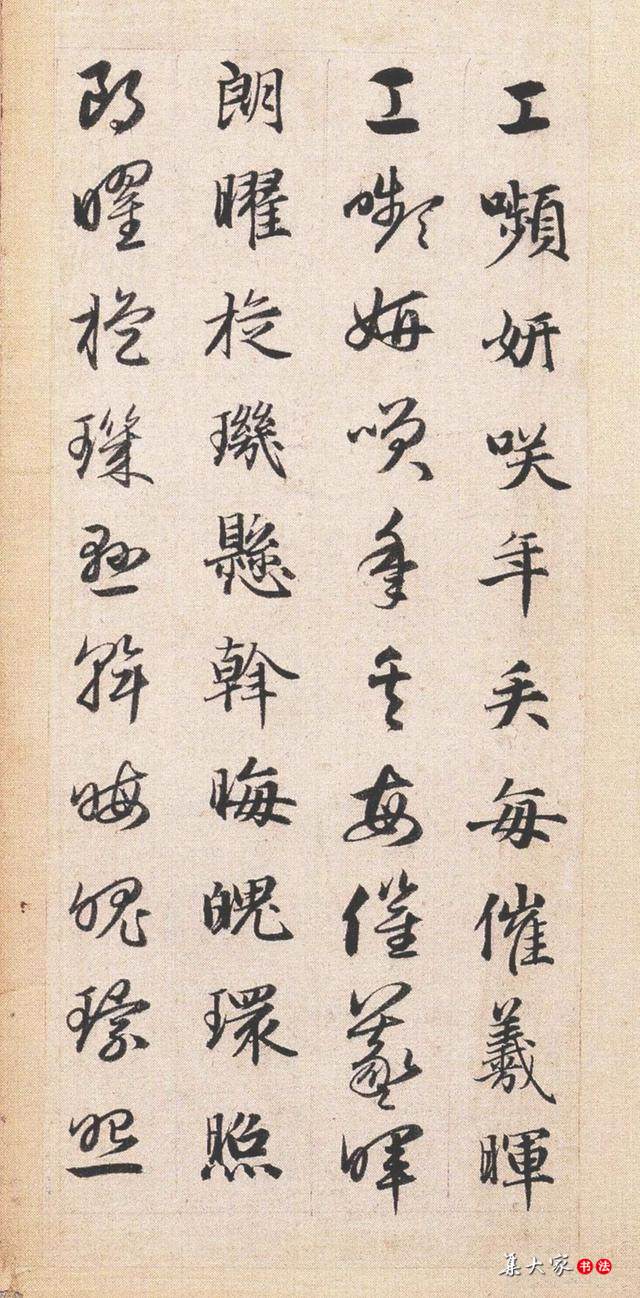 工嚬妍咲年矢每催羲暉
工嚬妍咲年矢每催羲暉
朗曜旋璣懸斡晦魄環照
朗曜旋璣懸斡晦魄環照
集大家书法